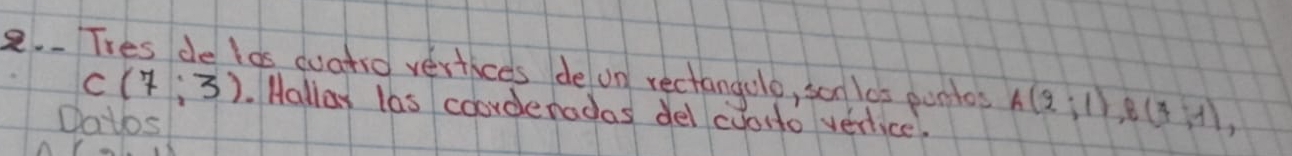 2.- Tres de los cuatro vértices de un rectangulo, son los puntos A(2;1), B(7;1),
C(7;3). Hallar las coordenadas del cuarto vértice.
Datos